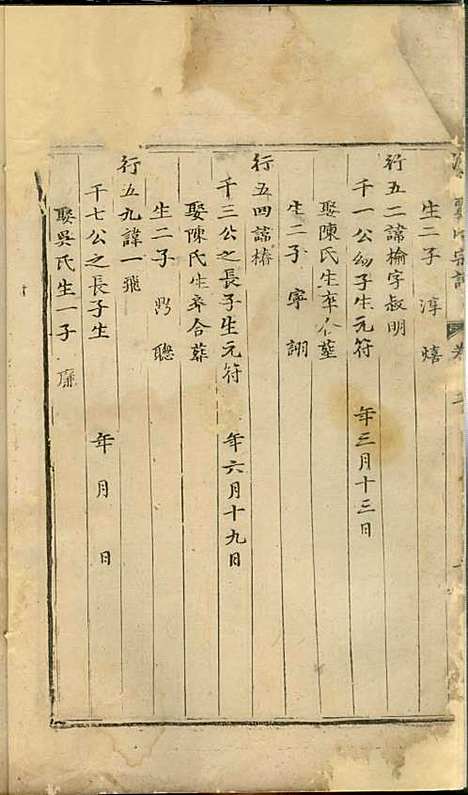 宗譜 卷
生二子 淳 熺
行五二諱榆字叔明
千一公幼子生元符 年三月十三日
娶陳氏生卒合葬
生二子 寧 詡
行五四諱椿
千三公之長子生元符 年六月十九日
娶陳氏生卒合葬
生二子 聰
行五九諱一飛
千七公之長子生 年 月 日
娶吳氏生一子 廉